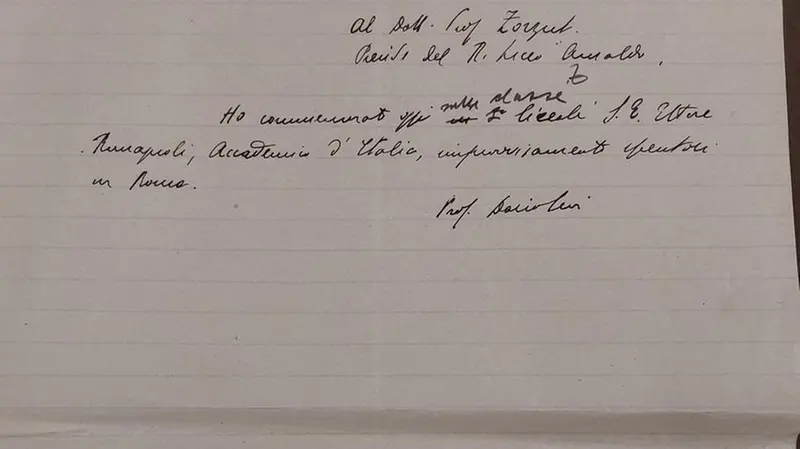 Al Dott. Prof Zorzut.
Preside del R. Liceo Arnaldo,
Ho commemorato oggi nelle classe liceali S. E. Ettore
Romagnoli, Accademico d'Italia, improvvisamente spentosi
in Roma.
Prof.